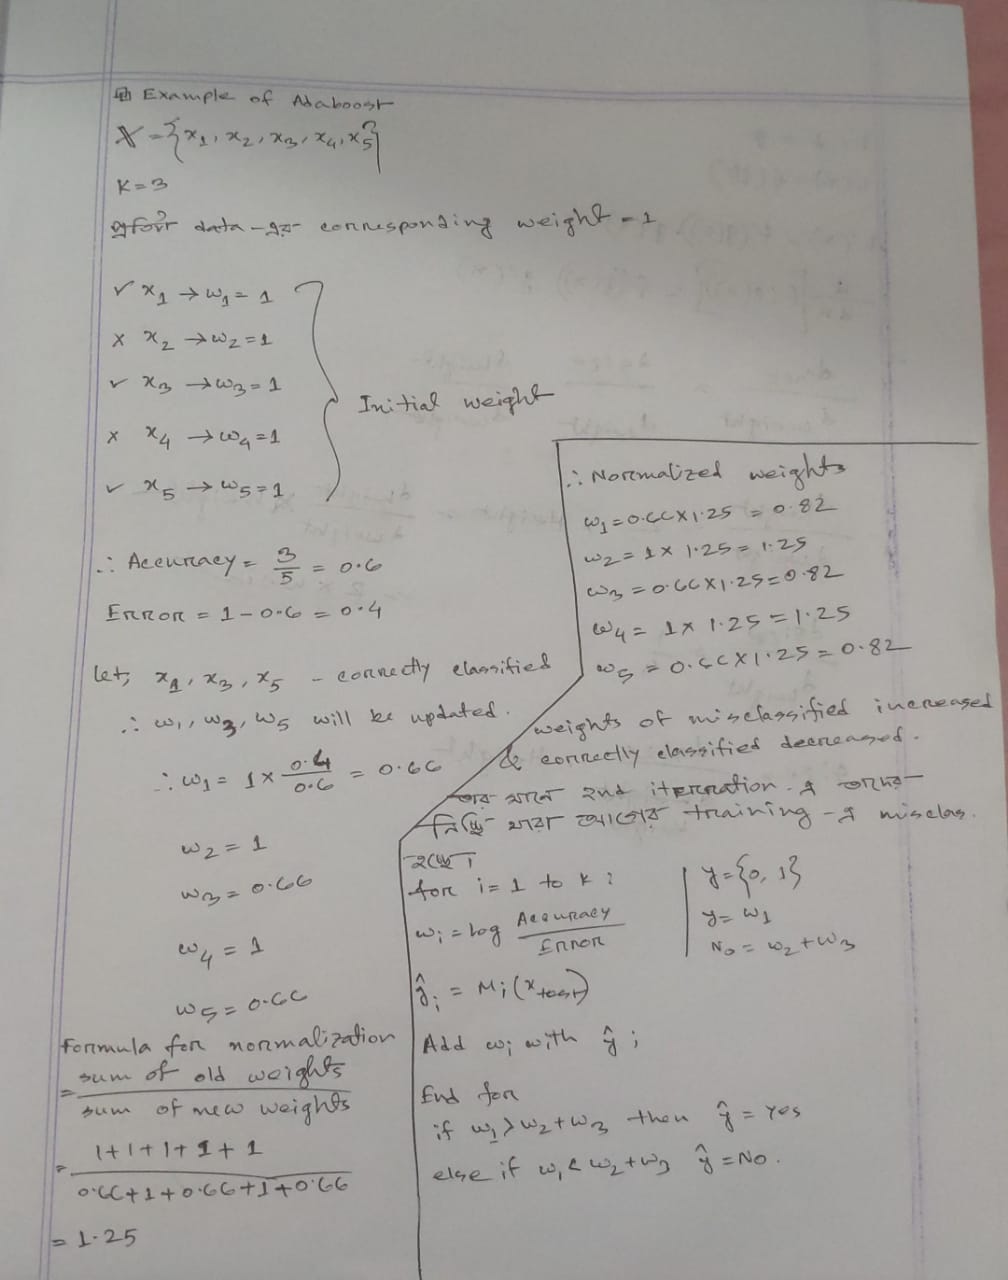 Example of Adaboost
X = {x1, x2, x3, x4, x5}
K = 3
প্রতিটা data-এর corresponding weight = 1
✓ x1 → w1 = 1
× x2 → w2 = 1
✓ x3 → w3 = 1
× x4 → w4 = 1
✓ x5 → w5 = 1
Initial weight
∴ Accuracy = 3/5 = 0.6
Error = 1 - 0.6 = 0.4
Let, x1, x3, x5 - correctly classified
∴ w1, w3, w5 will be updated.
∴ w1 = 1 × 0.4/0.6 = 0.66
w2 = 1
w3 = 0.66
w4 = 1
w5 = 0.66
Formula for normalization
= sum of old weights
sum of new weights
= 1+1+1+1+1
0.66+1+0.66+1+0.66
= 1.25
∴ Normalized weights
w1 = 0.66×1.25 = 0.82
w2 = 1×1.25 = 1.25
w3 = 0.66×1.25 = 0.82
w4 = 1×1.25 = 1.25
w5 = 0.66×1.25 = 0.82
weights of misclassified increased
& correctly classified decreased.
তার মানে 2nd iterration-এ তাদের
নিচ্ছি যারা আগের training-এ misclas.
হয়েছে।
for i = 1 to k :
wi = log Accuracy/Error
ŷi = Mi(xtest)
Add wi with ŷi
End for
if w1 > w2+w3 then ŷ = Yes
else if w1 < w2+w3 ŷ = No.
y = {0, 1}
y = w1
No = w2+w3